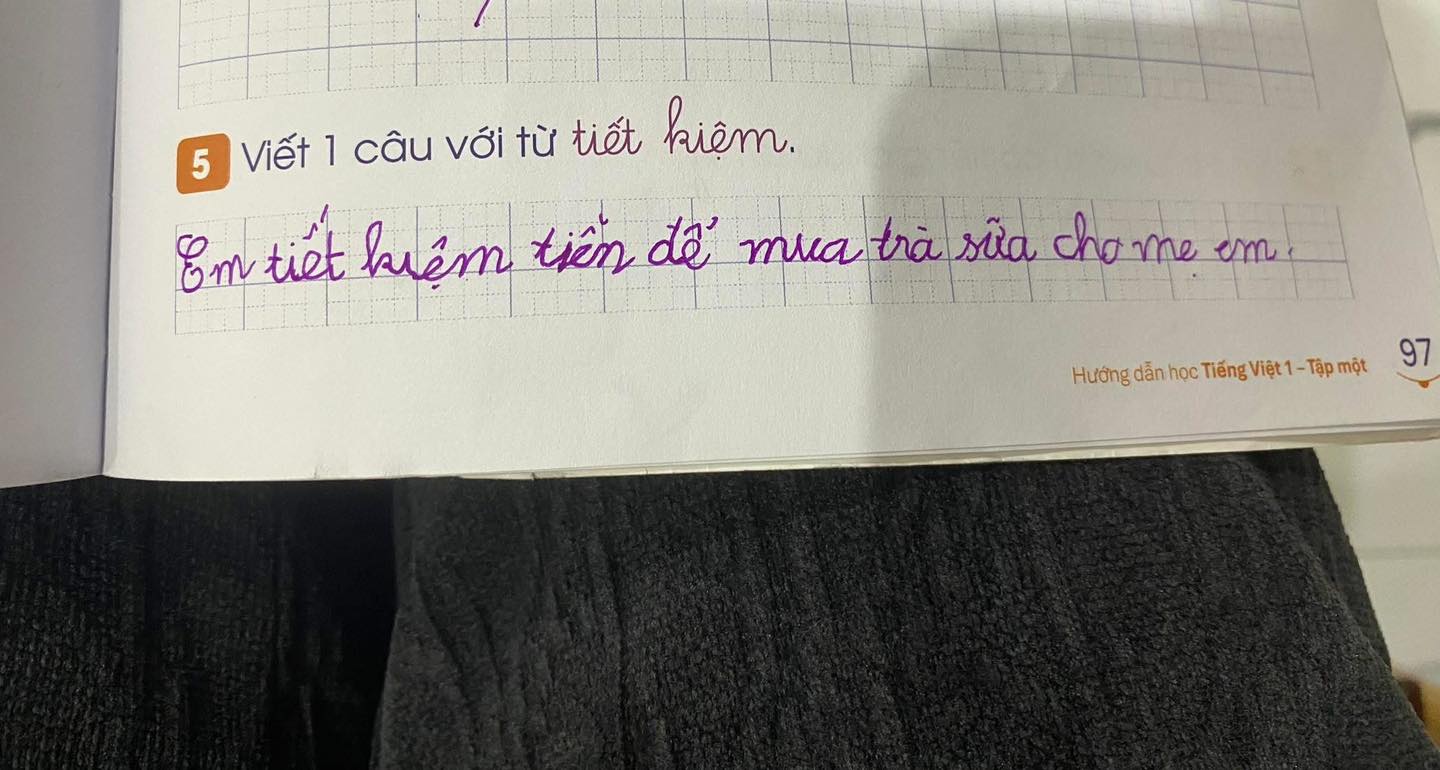 5 Viết 1 câu với từ tiết kiệm.
Em tiết kiệm tiền để mua trà sữa cho mẹ em.
Hướng dẫn học Tiếng Việt 1 - Tập một 97